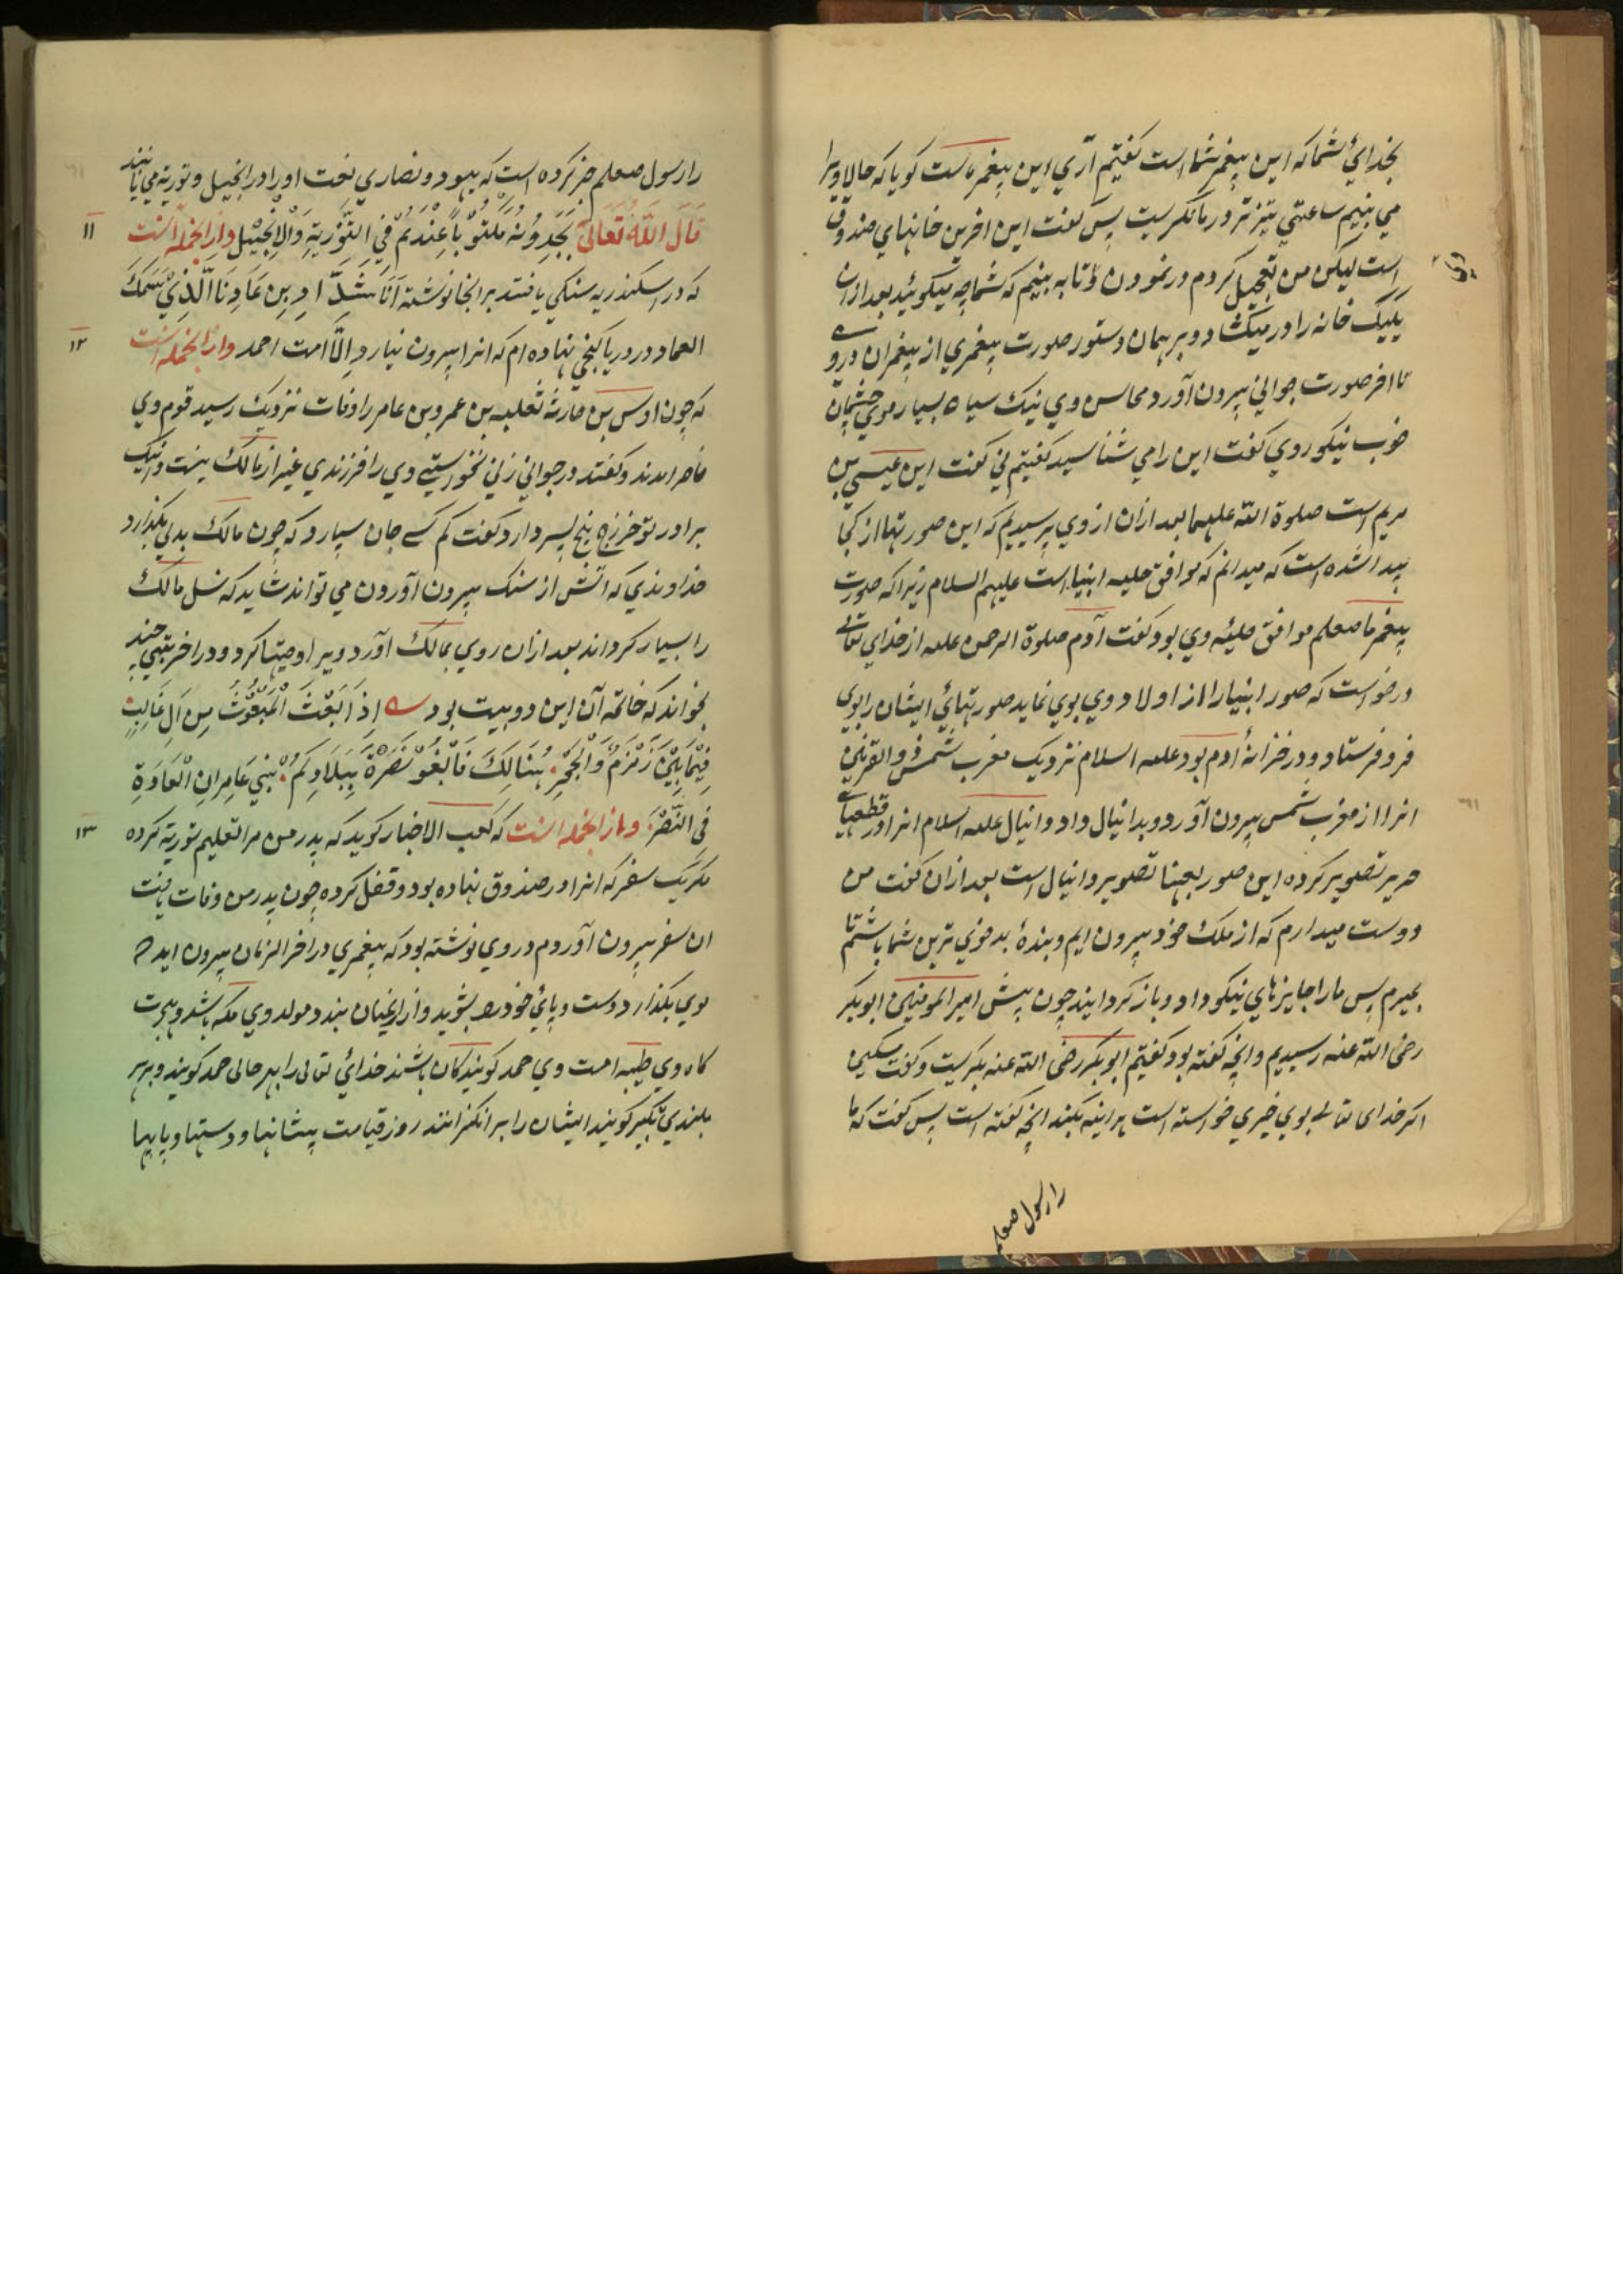 بخدائ شما که این پیغمبر شما است گفتیم آری این پیغمبر ماست گویا که حالا ویرا
می بینیم ساعتی تیز تر در ما نگریست پس گفت این اخرین خانهای صندوق
است لیکن من تعجیل کردم در نمودن تا به بینم که شما چه میگوئید بعد ازان
یکیک خانه را در میکشاد و بر همان دستور صورت پیغمبری از پیغمبران درو
تا اخر صورت جوانی بیرون آورد محاسن وی نیک سیاه بسیار موی چشمان
خوب نیکو روی گفت این را می شناسید گفتیم نی گفت این عیسی بن
مریم است صلوة الله علیهما بعد ازان از وی پرسیدیم که این صورتها از کجا
پیدا شده است که میدانم که موافق حلیه انبیا است علیهم السلام زیرا که صورت
پیغمبر ما صعلم موافق حلیئه وی بود گفت آدم صلوة الرحمن علعه از خدای تعالی
درخواست که صور انبیا را از اولاد وی بوی نماید صورتهائ ایشان را بوی
فرو فرستاد و در خزانهٔ ادم بود علعه السلام نزدیک مغرب شمس ذو القرنین
انرا از مغرب شمس بیرون آورد و بدانیال داد و انیال علعه السلام انرا در قطعهای
حریر تصویر کرده این صور بعینها تصویر دانیال است بعد ازان گفت من
دوست میدارم که از ملک خود بیرون ایم و بندهٔ بدخوی ترین شما باشم تا
بمیرم پس ما را جایزهای نیکو داد و باز گردانید چون پیش امیر المومنین ابوبکر
رضی الله عنه رسیدیم و انچه گفته بود گفتیم ابوبکر رضی الله عنه بگریست و گفت مسکین
اگر خدای تعالی بوی خیری خواسته است هر اینه بکند انچه گفته است پس گفت که ما
را رسول صعلم
را رسول صعلم خبر کرده است که یهود و نصاری نعت او را در انجیل و توریة می یابند
قال الله تعالی یجدونه مکتوباً عندهم فی التوریة والانجیل و از انجمله انست
۱۱
که در اسکندریه سنگی یافتند بر انجا نوشته انا شداد بن عاد انا الذی سمک
العماد و در دریا گنجی نهاده ام که انرا بیرون نیارد الّا امت احمد و از انجمله انست
۱۲
که چون اوس بن حارثه ثعلبه بن عمرو بن عامر را وفات نزدیک رسید قوم وی
حاضر امدند و گفتند در جوانی زنی نخواستی وی را فرزندی غیر از مالک نیست و اینک
برادر تو خزرج پنج پسر دارد گفت کم کسی جان سپارد که چون مالک بدلی بگذارد
خداوندی که اتش از سنگ بیرون آورون می تواند شاید که نسل مالک
را بسیار گرداند بعد ازان روی بمالک آورد و ویرا وصیتها کرد و در اخر بیتی چند
بخواند که خاتمه آن این دو بیت بود اذ ابعث المبعوث من ال غالب
فیما بین زمزم والحجر هنالک فابغو نصرة ببلادکم بنی عامر ان العادة
فی النصر و باز انجمله انست که کعب الاخبار گوید که پدر من مرا تعلیم توریة کرده
۱۳
مگر یک سفر که انرا در صندوق نهاده بود و قفل کرده چون پدر من وفات یافت
ان سفر بیرون آوردم در وی نوشته بود که پیغمبری در اخر الزمان بیرون اید
موی بگذارد دست و پائ خود را بشوید و ازار بمیان بندد مولد وی مکه باشد و هجرت
گاه وی طیبه امت وی حمد گویندگان باشند خدائ تعالی را بهر حالی حمد گویند و بر هر
بلندی تکبیر گویند ایشان را بر انگیزانند روز قیامت پیشانیها و دستها و پایها